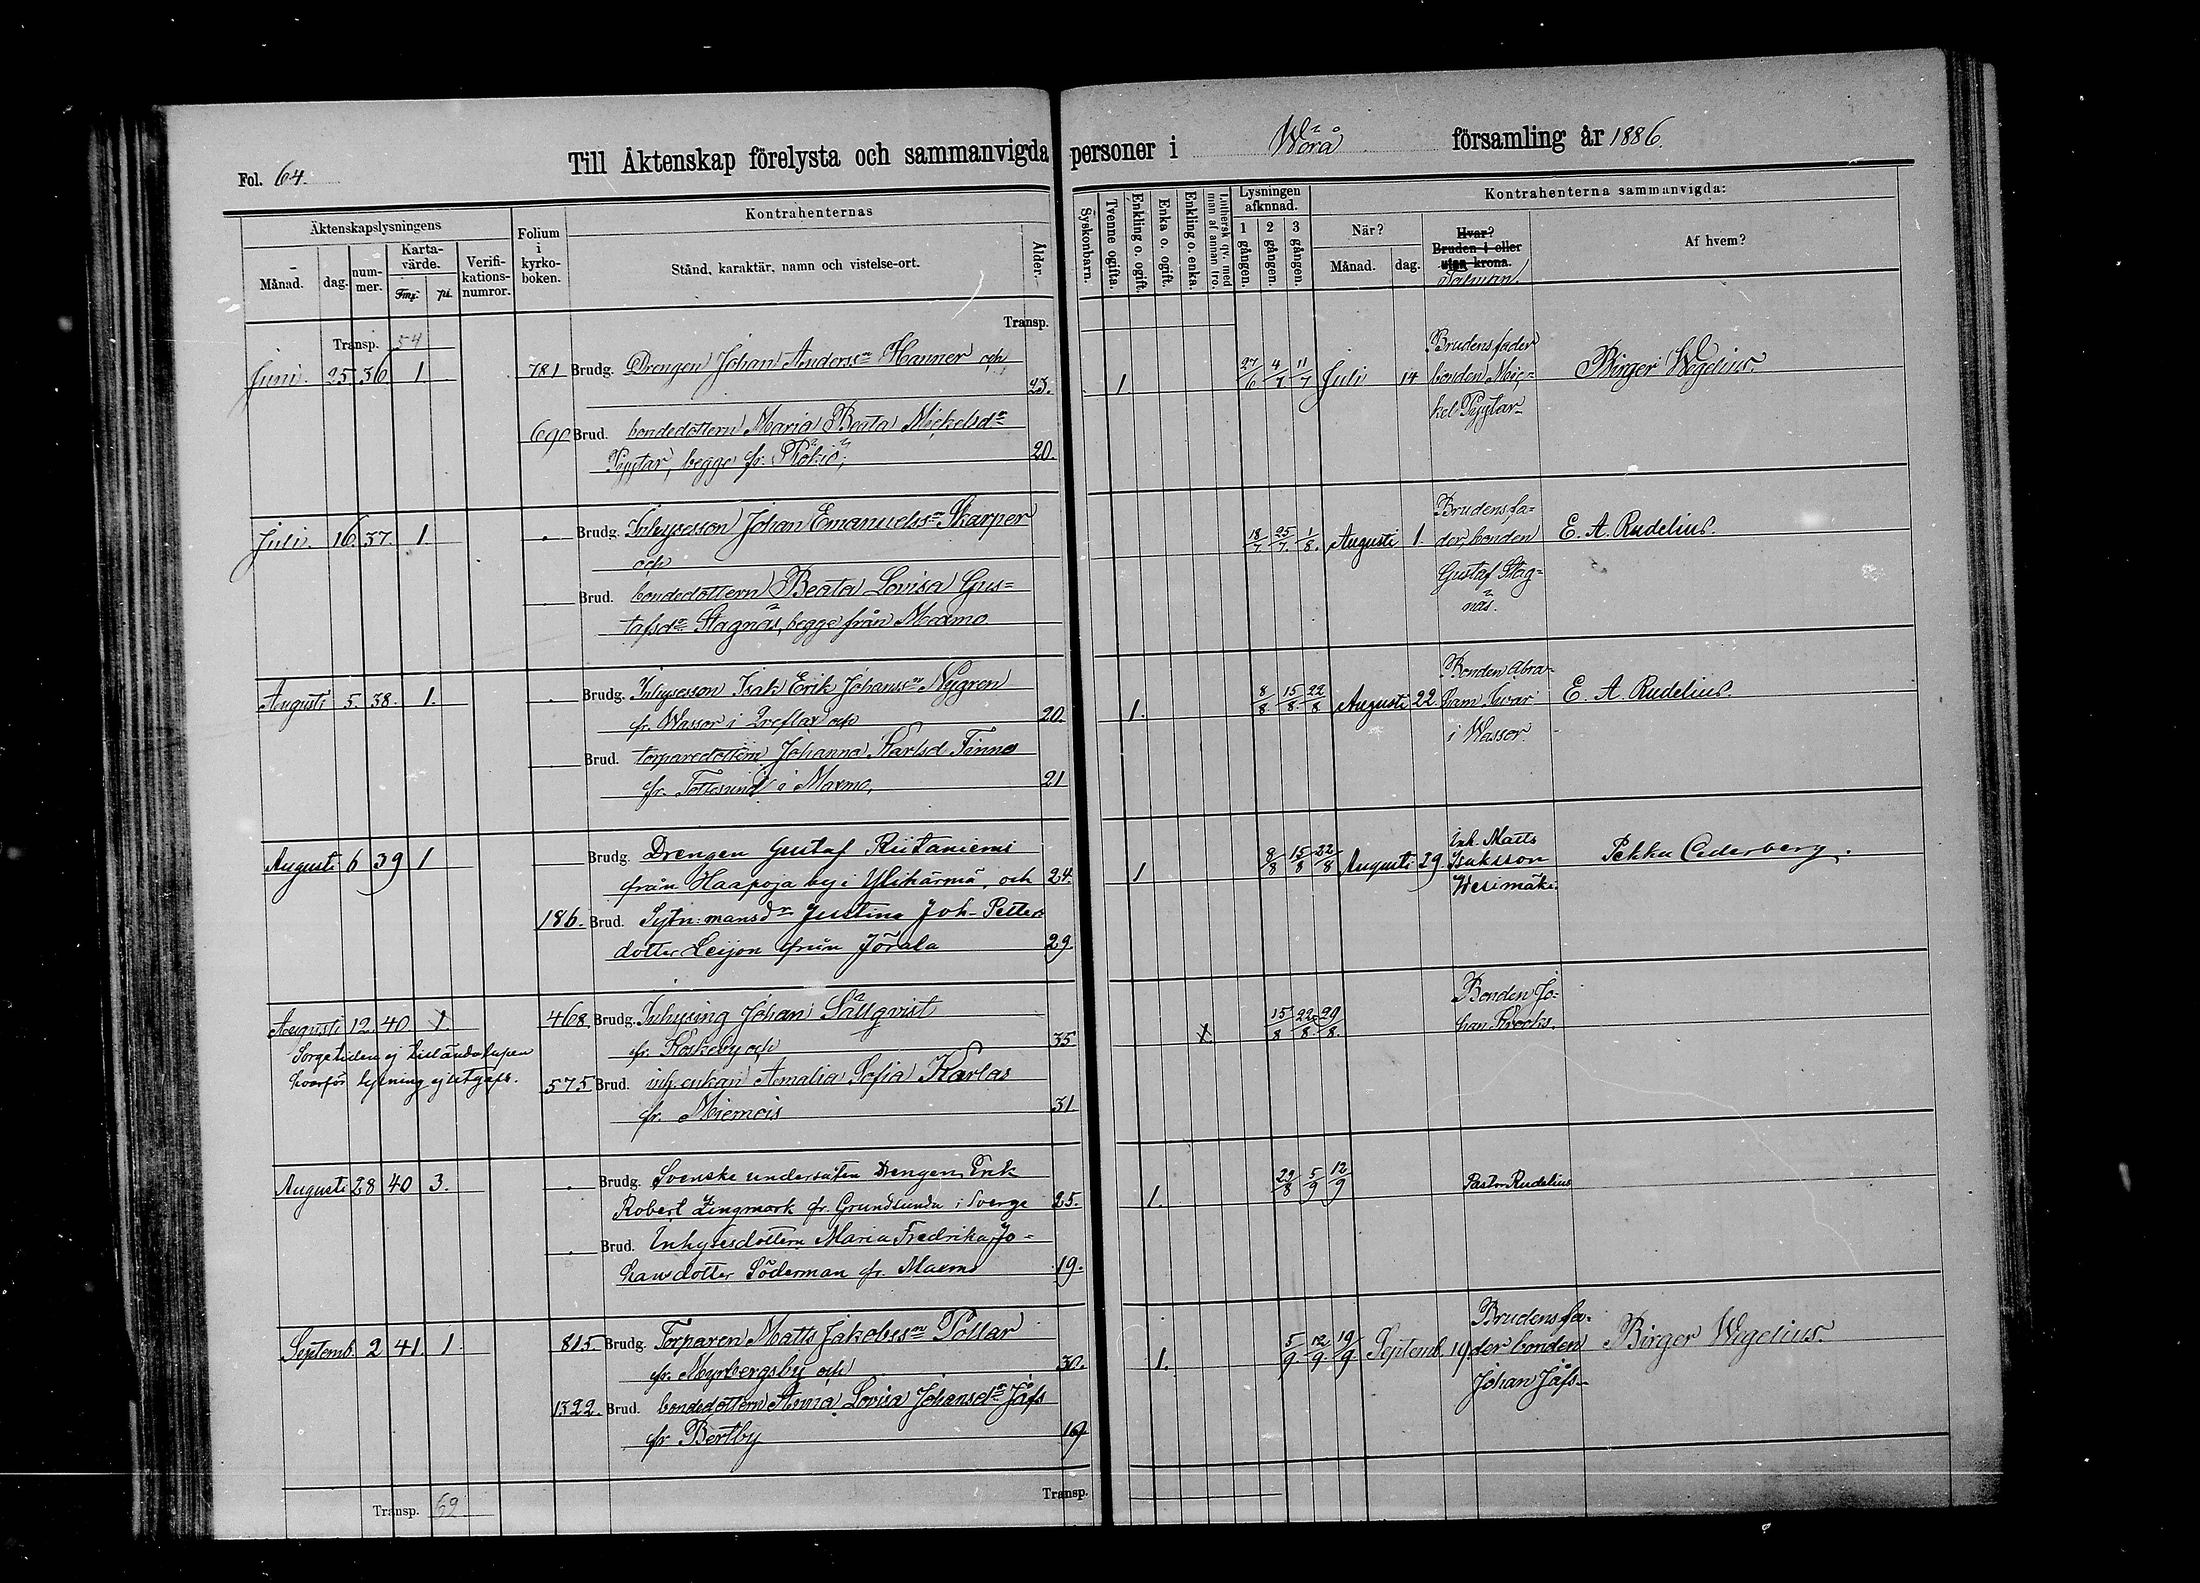 Fol. 64. Till Äktenskap förelysta och sammanvigda personer i Wörå församling år 1886.
Äktenskapslysningens
Månad. dag. num-mer. Karta-värde. Fmg. pi. Verifi-kations-numror.
Folium i kyrko-boken.
Kontrahenternas
Stånd, karaktär, namn och vistelse-ort. Ålder.
Syskonbarn. Tvenne ogifta. Enkling o. ogift. Enka o. ogift. Enkling o. enka. Luthersk qv. med man af annan tro.
Lysningen afknnad.
1 gången. 2 gången. 3 gången.
Kontrahenterna sammanvigda:
När? Månad. dag. Hvar? Bruden i eller utan krona. Talman. Af hvem?
Transp. 54 Transp.
Juni. 25 36 1. 781 Brudg. Drengen Johan Anderssn Hanner och 23. 1. 27/6 4/7 11/7 Juli 14 Brudens fader Birger Wegelius.
bonden Mic-
kel Pyytar
690 Brud. bondedottern Maria Beata Mickelsdr
Pyytar, begge fr. Rökiö; 20.
Juli. 16. 37. 1. . Brudg. Inhysesson Johan Emanuelssn Skarper 18/7. 25/7. 1/8. Augusti 1. Brudens fa- E. A. Rudelius.
och der, bonden
. Brud. bondedottern Beata Lovisa Gus= Gustaf Stag=
tafsdr Stagnäs, begge från Maxmo. näs.
Augusti 5. 38. 1. . Brudg. Inhysesson Isak Erik Johanssn Nygren 8/8 15/8. 22/8 Augusti 22. Bonden Abra- E. A. Rudelius.
fr. Wassor i Qveflax och 20. 1. ham
Brud. torparedottern Johanna Karlsd Finne i Wassor.
fr. Tottesund i Maxmo, 21
Augusti 6 39 1 Brudg. Drengen Gustaf Riitaniemi 8/8 15/8 22/8 Augusti 29. Inh. Matts Pekka Cederberg.
från Haapoja by i Ylihärmä, och 24. 1 Isaksson
Wesimäki.
186. Brud. Sytn:mansdr Justina Joh-Petters
dotter Leijon från Jörala 29.
Augusti 12. 40 1 468. Brudg. Inhysing Johan Sällqvist 15/8 22/8. 29/8. Bonden Jo=
Sorgetiden ej tilländalupen fr. Koskeby och 35 1. han Krooks.
hvarför lysning ej utgafs. 575 Brud. inh. enkan Amalia Sofia Karlas
fr. Miemois 31.
Augusti 28 40 3. . Brudg. Svenske undersåten Drengen Erik 29/8 5/9 12/9 Pastor Rudelius
Robert Zingmark fr. Grundsunda i Sverge 25. 1.
. Brud. Inhysesdottern Maria Fredrika Jo=
hansdotter Söderman fr. Maxmo 19.
Septemb. 2 41. 1. 815. Brudg. Torparen Matts Jakobssn Pollar 5/9. 12/9. 19/9 Septemb. 19 Brudens fa- Birger Wegelius.
fr. Myrbergsby och 30. 1. der bonden
1322. Brud. bondedottern Anna Lovisa Johansdr Jåfs Johan Jåfs
fr Bertby 19
Transp. 69 Transp.